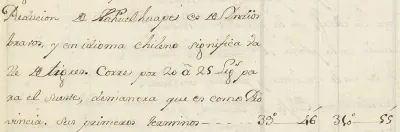 Reducion de Nahuelhuapi es de Indios
bravos, y en idioma chileno significa da
de tigres. Corres por 20 à 25 Leg.s pa
ra el Sueste, demanera que es como Pro
vincia. Sus primeros terminos 39° 46 310° 55